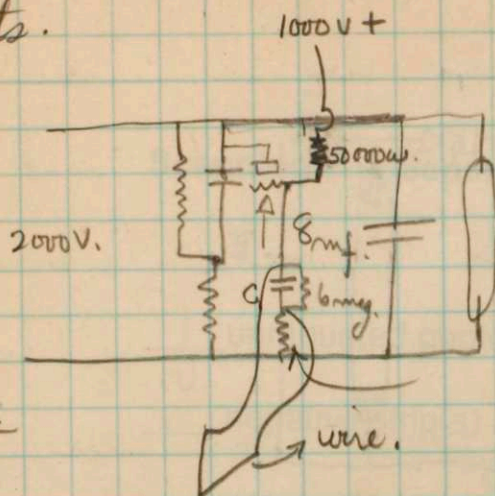 ts.
1000 V +
50000ω.
2000V.
8mf.
C
6meg.
wire.